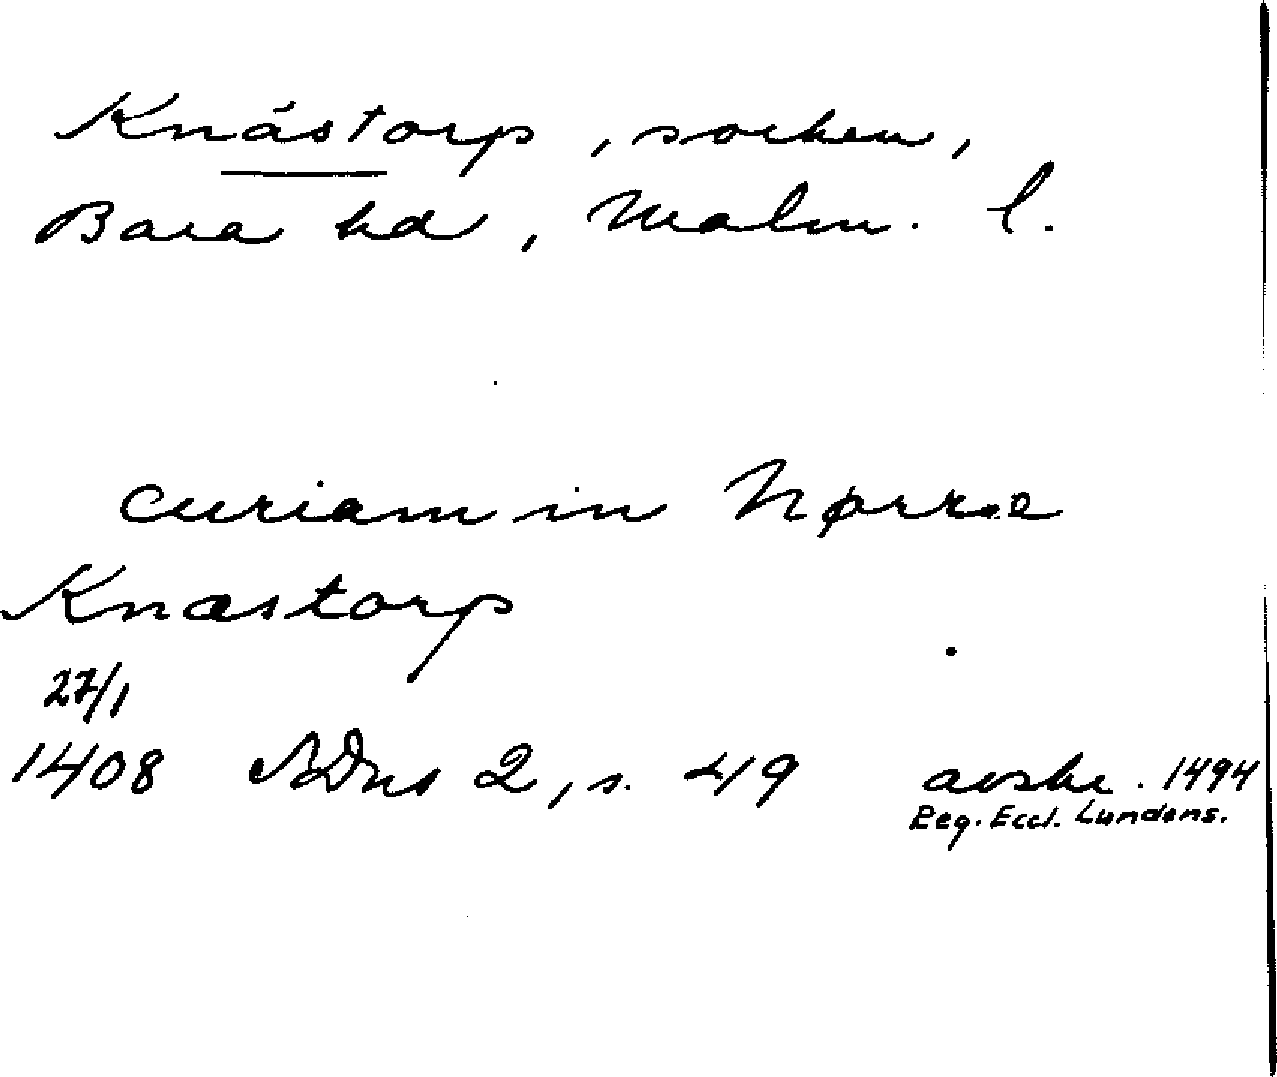 Knástorp, socken,
Bara hd, Malm. l.
curiam in Nørræ
Knæstorp
27/1
1408 SDns 2, s. 49 avskr. 1494
Reg. Eccl. Lundens.